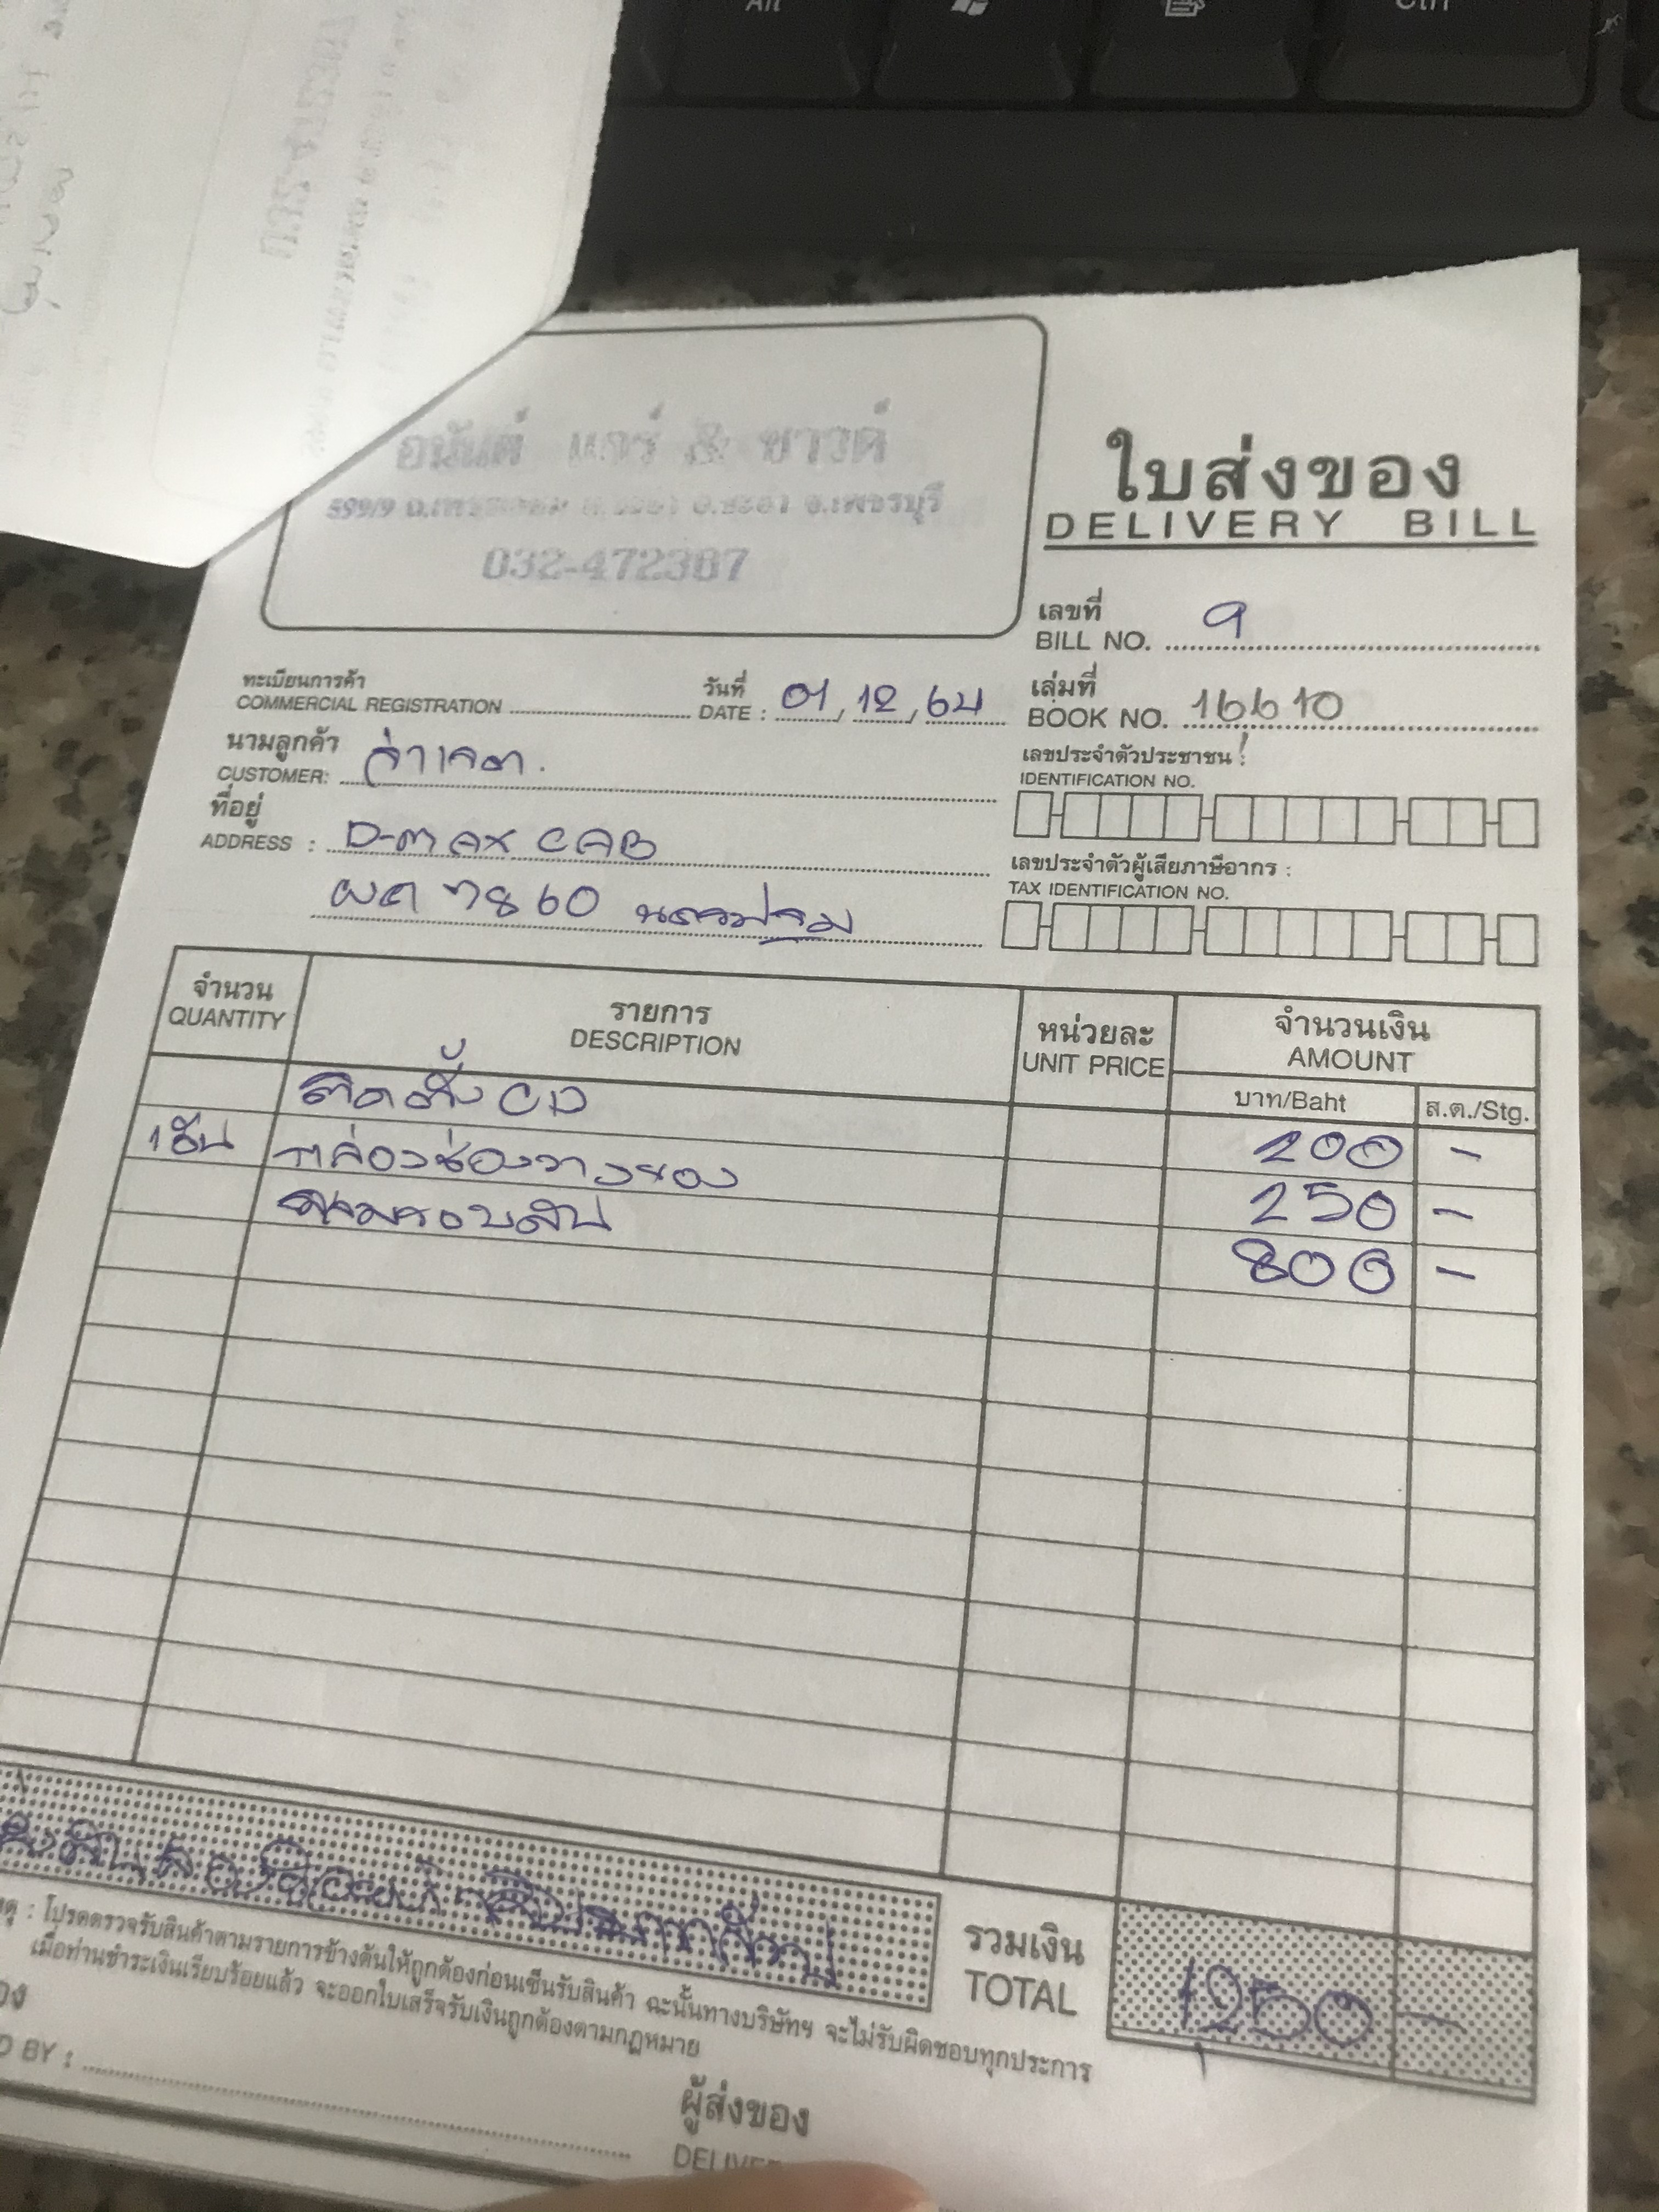 Alt
Ctrl
อนันต์ แอร์ & ซาวด์
599/9 ถ.เพชรเกษม ต.ชะอำ อ.ชะอำ จ.เพชรบุรี
032-472387
ใบส่งของ
DELIVERY BILL
เลขที่
BILL NO. 9
ทะเบียนการค้า
COMMERCIAL REGISTRATION
วันที่
DATE : 01, 12, 64
เล่มที่
BOOK NO. 16610
นามลูกค้า
CUSTOMER:
เลขประจำตัวประชาชน :
IDENTIFICATION NO.
ที่อยู่
ADDRESS : D-MAX CAB
ผต 7860 นครปฐม
เลขประจำตัวผู้เสียภาษีอากร :
TAX IDENTIFICATION NO.
จำนวน
QUANTITY
รายการ
DESCRIPTION
หน่วยละ
UNIT PRICE
จำนวนเงิน
AMOUNT
บาท/Baht ส.ต./Stg.
ติดตั้ง CD 200 -
1 อัน กล่องช่องวางของ 250 -
800 -
รวมเงิน
TOTAL
1250 -
: โปรดตรวจรับสินค้าตามรายการข้างต้นให้ถูกต้องก่อนเซ็นรับสินค้า ฉะนั้นทางบริษัทฯ จะไม่รับผิดชอบทุกประการ
เมื่อท่านชำระเงินเรียบร้อยแล้ว จะออกใบเสร็จรับเงินถูกต้องตามกฎหมาย
BY :
ผู้ส่งของ